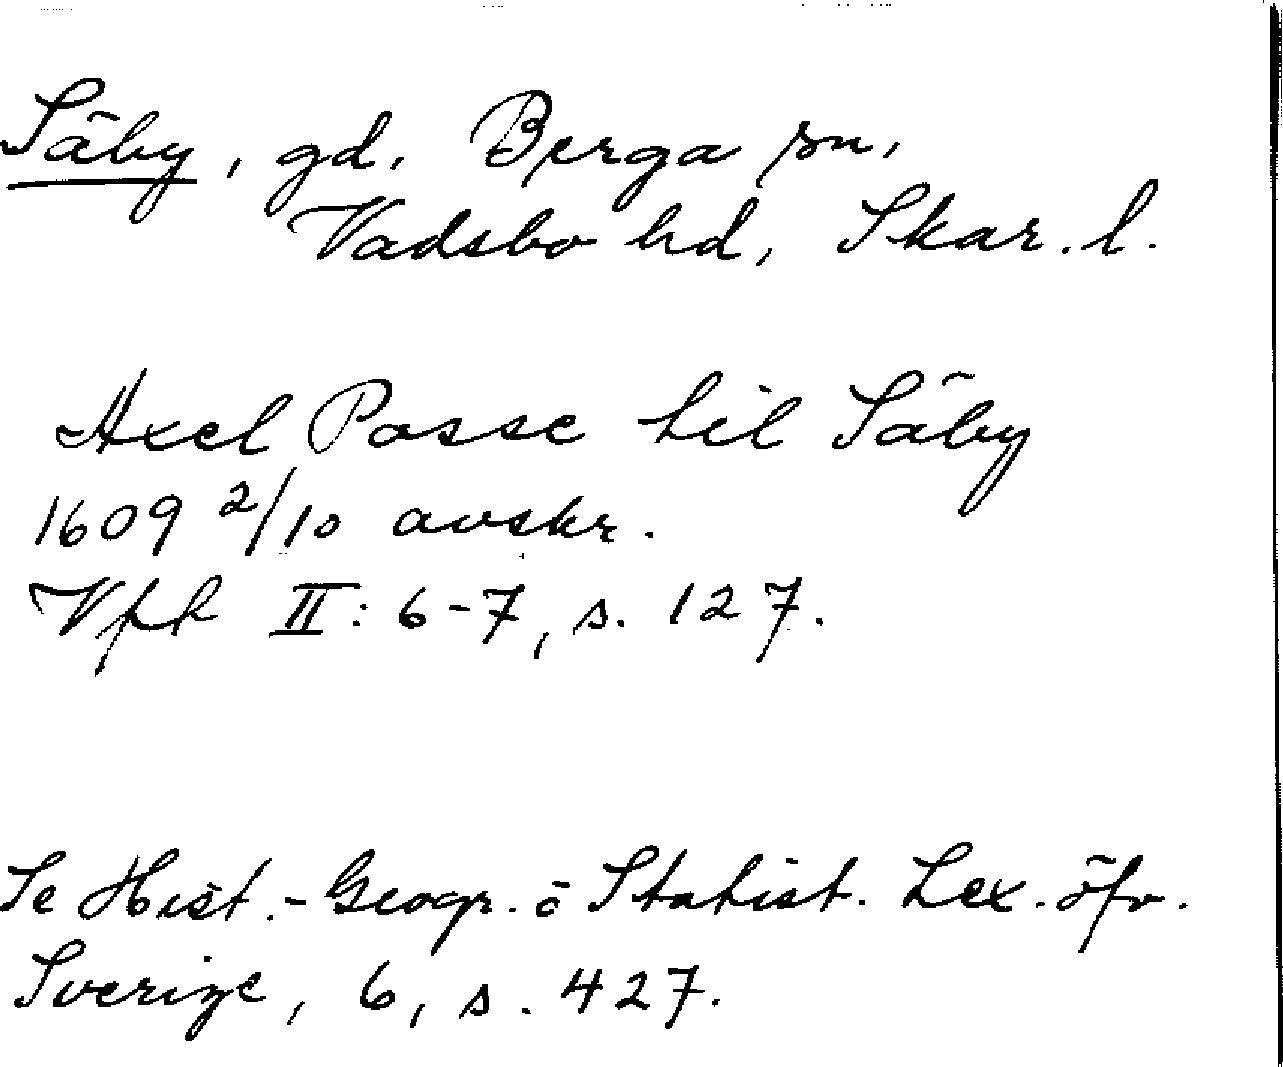 Säby, gd, Berga sn,
Vadsbo hd, Skar. l.
Axel Posse til Säby
1609 2/10 avskr.
Vfk II: 6-7, s. 127.
Se Hist.-Geogr. o Statist. Lex. öfv.
Sverige, 6, s. 427.